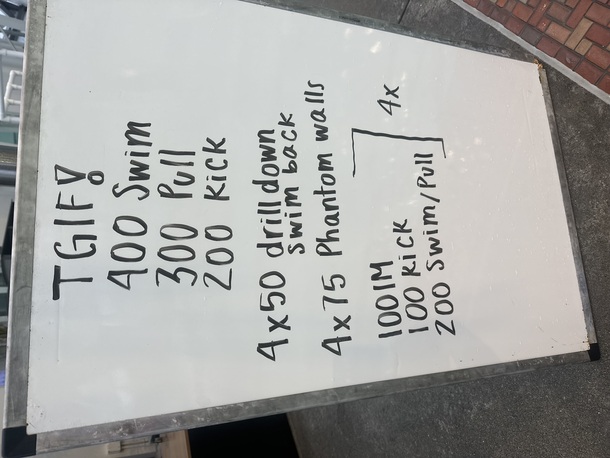 TGIF!
400 Swim
300 Pull
200 Kick
4x50 drill down
swim back
4x75 Phantom walls
100 IM
100 Kick
200 Swim/Pull
4x